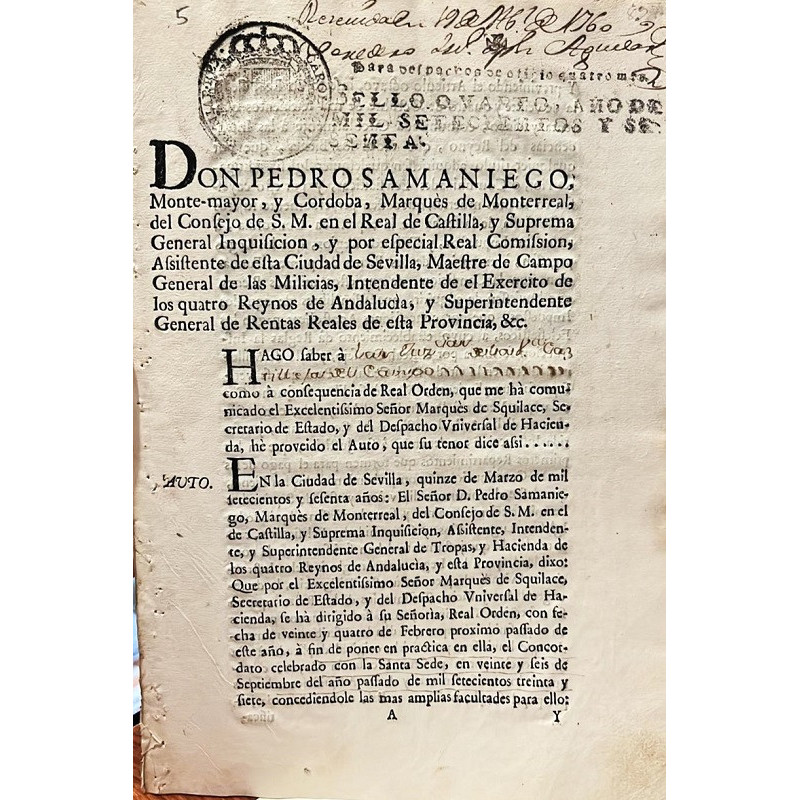 5
de 1760
Aguilar
Para despachos de oficio quatro mrs.
SELLO QVARTO, AÑO DE
MIL SETECIENTOS Y SE-
SENTA.
DON PEDRO SAMANIEGO,
Monte-mayor, y Cordoba, Marquès de Monterreal,
del Conſejo de S. M. en el Real de Caſtilla, y Suprema
General Inquiſicion, y por eſpecial Real Comiſsion,
Aſsiſtente de eſta Ciudad de Sevilla, Maeſtre de Campo
General de las Milicias, Intendente de el Exercito de
los quatro Reynos de Andalucìa, y Superintendente
General de Rentas Reales de eſta Provincia, &c.
HAGO ſaber à
como à conſequencia de Real Orden, que me hà comu-
nicado el Excelentiſsimo Señor Marquès de Squilace, Se-
cretario de Eſtado, y del Deſpacho Vniverſal de Hacien-
da, hè proveido el Auto, que ſu tenor dice aſsi......
AUTO.
EN la Ciudad de Sevilla, quinze de Marzo de mil
ſetecientos y ſeſenta años: El Señor D. Pedro Samanie-
go, Marquès de Monterreal, del Conſejo de S. M. en el
de Caſtilla, y Suprema Inquiſicion, Aſsiſtente, Intenden-
te, y Superintendente General de Tropas, y Hacienda de
los quatro Reynos de Andalucìa, y eſta Provincia, dixo:
Que por el Excelentiſsimo Señor Marquès de Squilace,
Secretario de Eſtado, y del Deſpacho Vniverſal de Ha-
cienda, ſe hà dirigido à ſu Señorìa, Real Orden, con fe-
cha de veinte y quatro de Febrero proximo paſſado de
eſte año, à fin de poner en practica en ella, el Concor-
dato celebrado con la Santa Sede, en veinte y ſeis de
Septiembre del año paſſado de mil ſetecientos treinta y
ſiete, concediendole las mas amplias facultades para ello:
A
Y